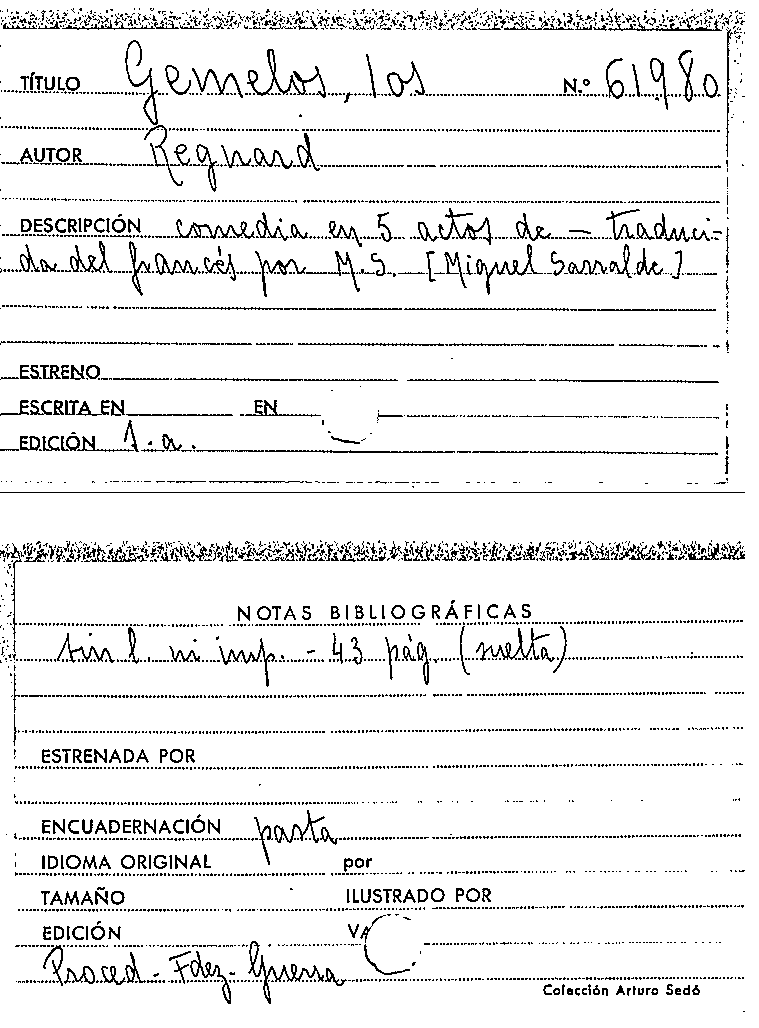 TÍTULO Gemelos, los N.º 61980
AUTOR Regnard
DESCRIPCIÓN comedia en 5 actos de — traduci-
da del francés por M.S. [Miguel Sarralde]
ESTRENO
ESCRITA EN EN
EDICIÓN 1.a.
NOTAS BIBLIOGRÁFICAS
sin l. ni imp. - 43 pág. (suelta)
ESTRENADA POR
ENCUADERNACIÓN pasta
IDIOMA ORIGINAL por
TAMAÑO ILUSTRADO POR
EDICIÓN VA
Proced - Fdez - Guerra
Colección Arturo Sedó